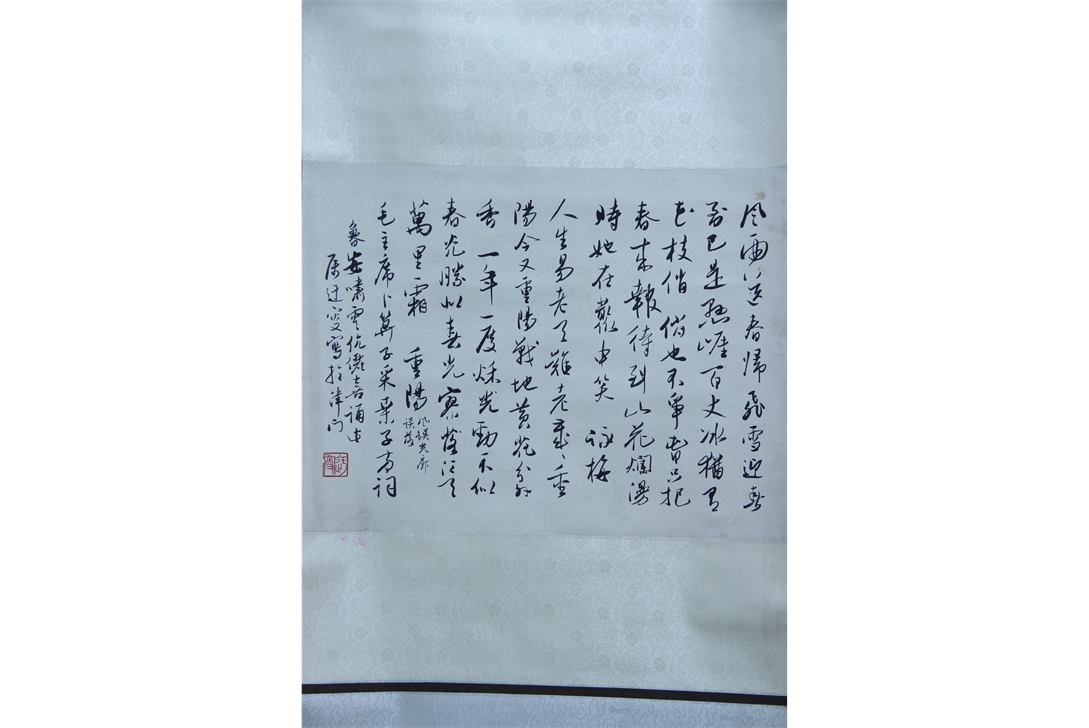 风雨送春歸飛雪迎春
到已是懸崖百丈冰猶有
花枝俏 俏也不爭春只把
春來報待到山花爛漫
時她在叢中笑 詠梅
人生易老天難老歲々重
陽今又重陽戰地黃花分外
香 一年一度秋光勁不似
春光勝似春光寥廓江天
萬里霜 重陽
風誤光廓
誤落
毛主席卜算子采桑子兩詞
魯安嘯雲伉儷喜誦
寫於津門